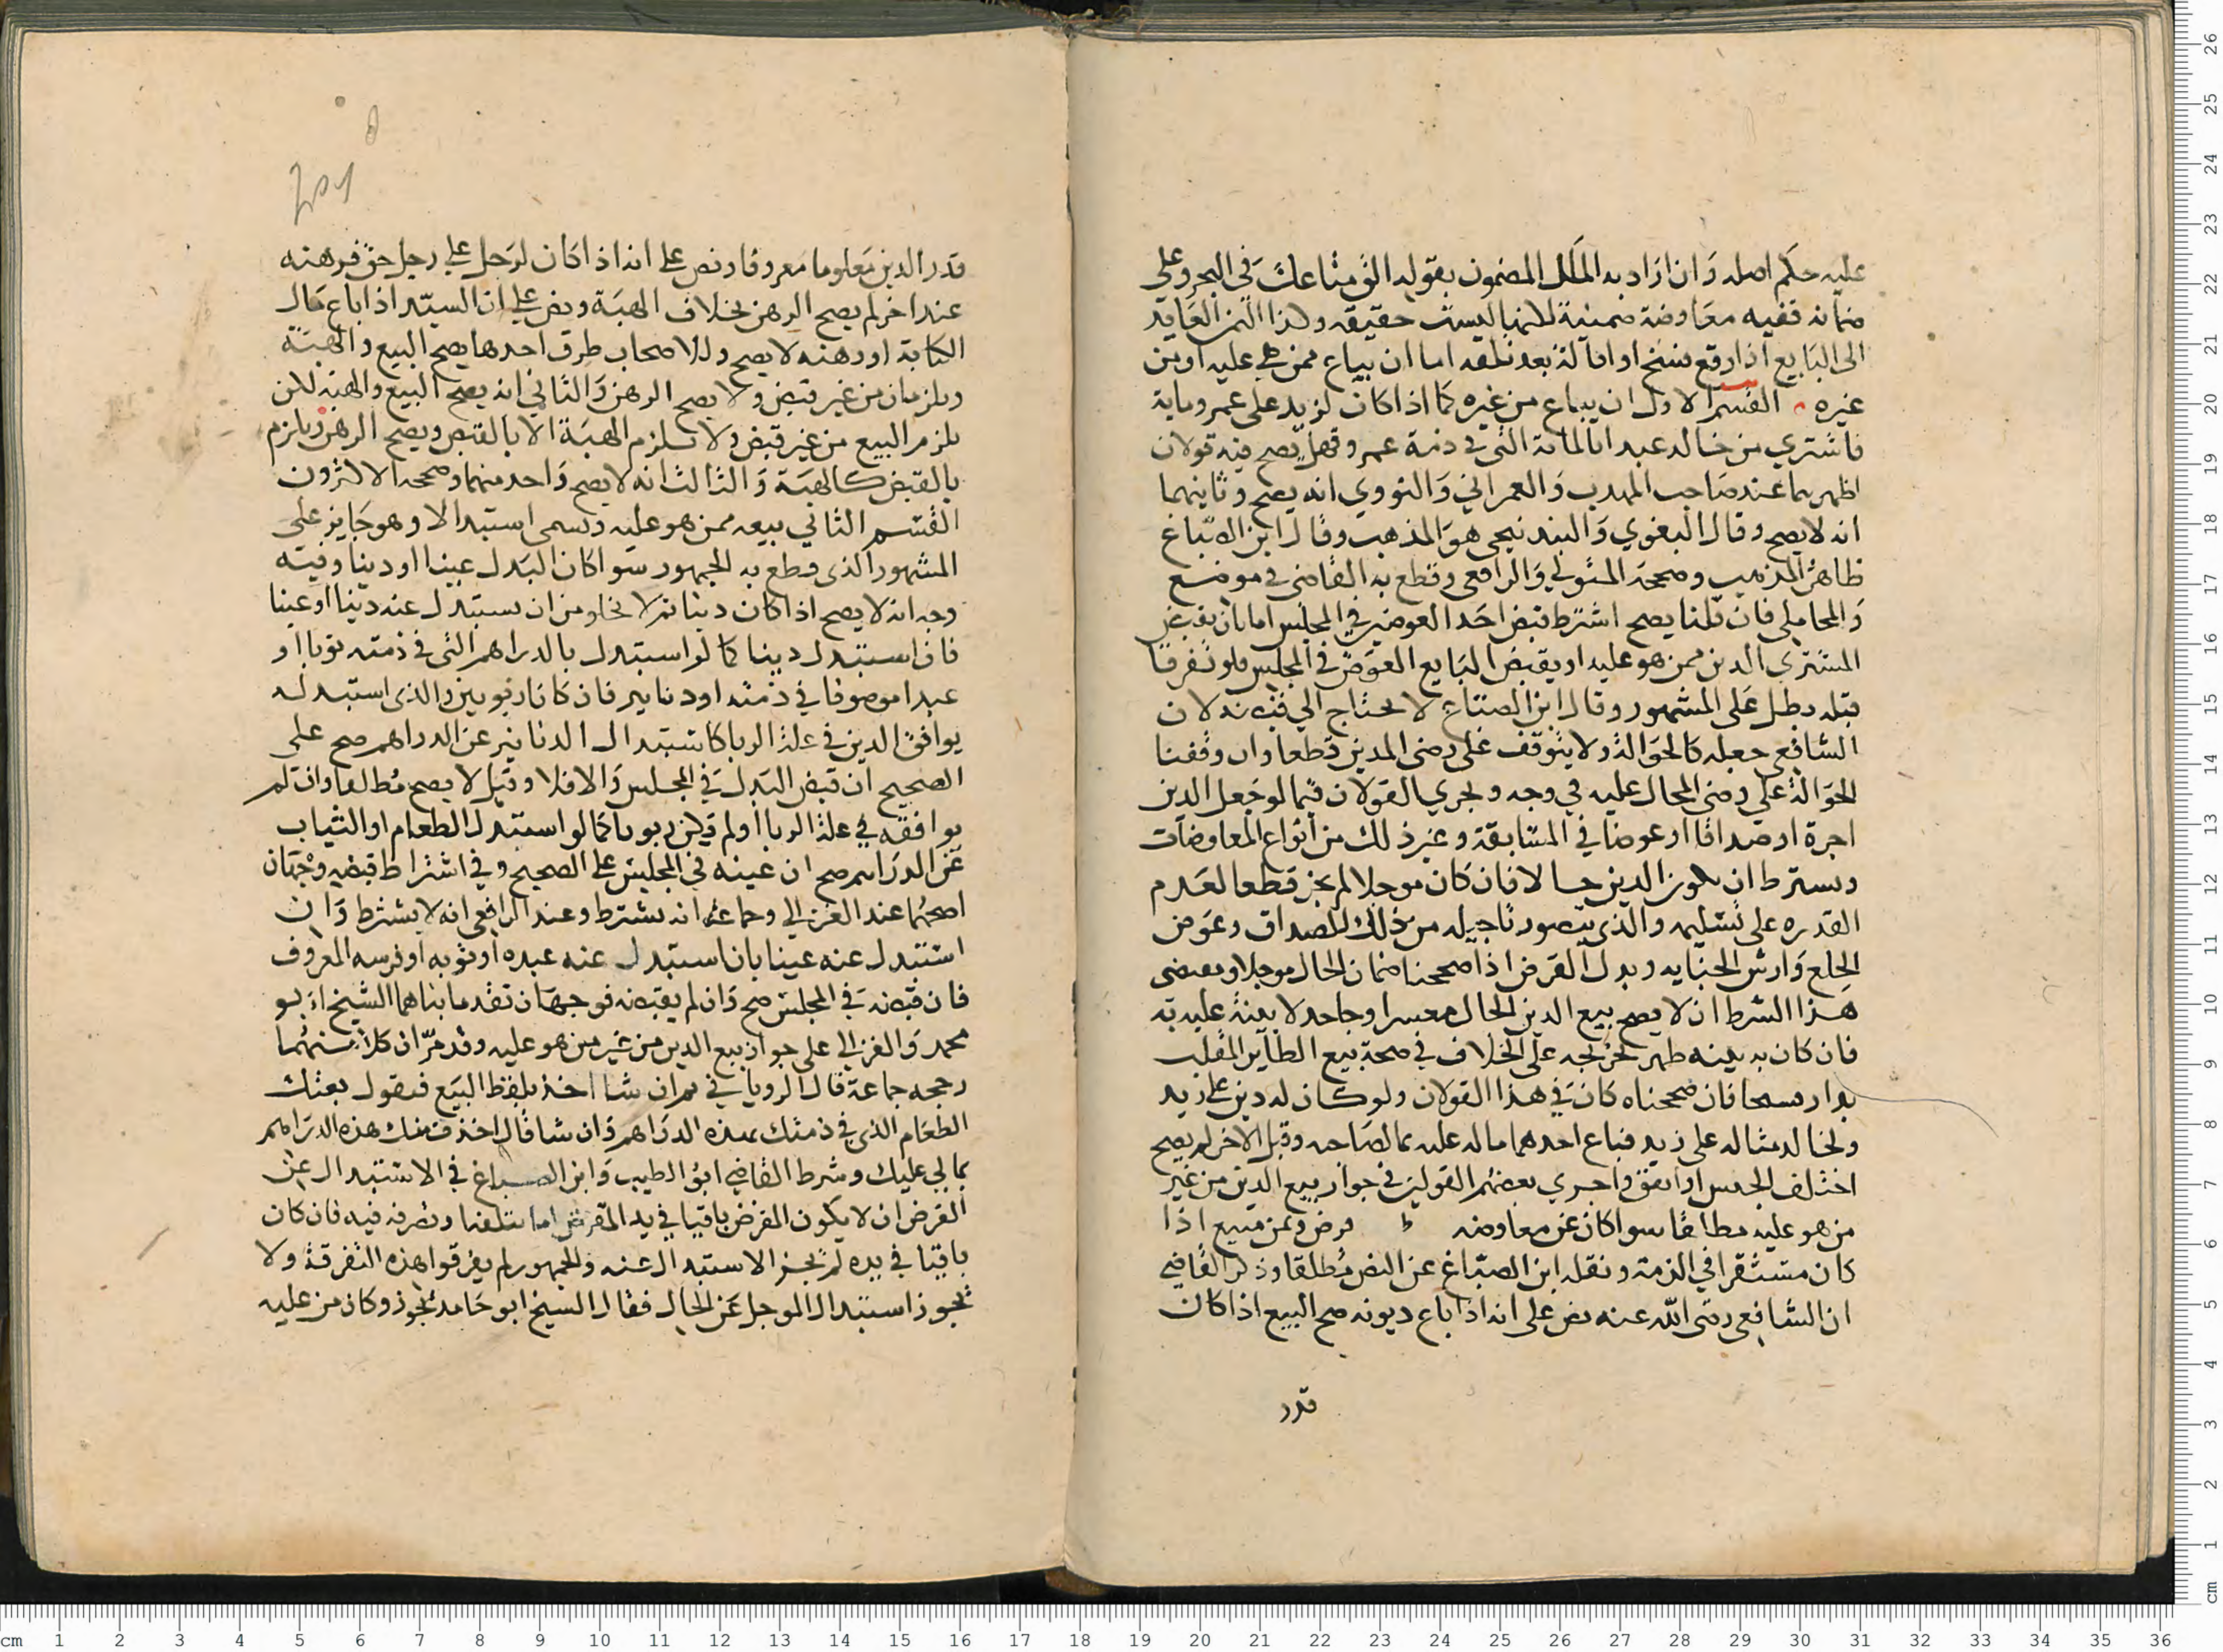 عليه حكم اصله وان اراد به الملك المضمون بقوله الق متاعك في البحر وعلي
ضمانه ففيه معاوضة ضمنية لكنها ليست حقيقه وكذا الثمن العايد
الى البايع اذا وقع فسخ او اقالة بعد تلفه اما ان يباع ممن هي عليه او من
غيره القسم الاول ان يباع من غيره كما اذا كان لزيد على عمرو ماية
فاشتري من خالد عبدا بالماية التي في ذمة عمرو فهل يصح فيه قولان
اظهرهما عند صاحب المهذب والعمراني والنووي انه يصح وثانيهما
انه لا يصح وقال البغوي والبندنيجي هو المذهب وقال ابن الصباغ
ظاهر المذهب وصححه المتولي والرافعي وقطع به القاضي في موضع
والمحاملي فان قلنا يصح اشترط قبض احد العوضين في المجلس اما بان يقبض
المشتري الدين ممن هو عليه او يقبض البايع العوض في المجلس فلو تفرقا
قبله بطل على المشهور وقال ابن الصباغ لا يحتاج الي قبضه لان
الشافعي جعله كالحوالة ولا يتوقف على رضى المدين قطعا وان وقفنا
الحوالة على رضى المحال عليه في وجه ويجري القولان فيما لو جعل الدين
اجرة او صداقا او عوضا في المسابقة وغير ذلك من انواع المعاوضات
ويشترط ان يكون الدين حالا فان كان موجلا لم يجز قطعا لعدم
القدره على تسليمه والذي يتصور تاجيله من ذلك الصداق وعوض
الخلع وارش الجنايه وبدل القرض اذا صححنا ضمان الحال موجلا ومقتضى
هذا الشرط ان لا يصح بيع الدين الحال معسرا وجاحد لا بينة عليه به
فان كان به بينه ظهر تخريجه على الخلاف في صحة بيع الطاير المفلت
فان صححناه كان في هذا القولان ولو كان له دين على زيد
ولخالد مثاله على زيد فباع احدهما ماله عليه بما لصاحبه وقبل الاخر لم يصح
اختلف الجنس او اتفق واجري بعضهم القولين في جواز بيع الدين من غير
من هو عليه مطلقا سوا كان عن معاوضه ط قرض وثمن مبيع اذا
كان مستقرا في الذمة ونقله ابن الصباغ عن النص مطلقا وذكر القاضي
ان الشافعي رضى الله عنه نص على انه اذا باع ديونه صح البيع اذا كان
قدر
قدر الدين معلوما معروفا ونص على انه اذا كان لرجل على رجل حق فرهنه
عند اخر لم يصح الرهن بخلاف الهبة ونص على ان السيد اذا باع مال
الكتابة او رهنه لا يصح وللاصحاب طرق احدها يصح البيع والهبة
ويلزمان من غير قبض ولا يصح الرهن والثاني انه يصح البيع والهبة لكن
يلزم البيع من غير قبض ولا تلزم الهبة الا بالقبض ويصح الرهن ويلزم
بالقبض كالهبة والثالث انه لا يصح واحد منهما وصححه الاكثرون
القسم الثاني بيعه ممن هو عليه ويسمى استبدالا وهو جايز على
المشهور الذي قطع به الجمهور سوا كان البدل عينا او دينا وفيه
وجه انه لا يصح اذا كان دينا ثم لا يخلو من ان يستبدل عنه دينا او عينا
فان استبدل دينا كما لو استبدل بالدراهم التي في ذمته ثوبا او
عبدا موصوفا في ذمته او دنانير فان كانا ربويين والذي استبدله
يوافق الدين في علة الربا كاستبدال الدنانير عن الدراهم صح على
الصحيح ان قبض البدل في المجلس والا فلا وقيل لا يصح مطلقا وان لم
يوافقه في علة الربا او لم يكن ربويا كما لو استبدل الطعام او الثياب
عن الدراهم صح ان عينه في المجلس على الصحيح وفي اشتراط قبضه وجهان
اصحهما عند الغزالي وجماعة انه يشترط وعند الرافعي انه لا يشترط وان
استبدل عنه عينا بان استبدل عنه عبده او ثوبه او فرسه المعروف
فان قبضه في المجلس صح وان لم يقبضه فوجهان تقدما بناهما الشيخ ابو
محمد والغزالي على جواز بيع الدين من غير من هو عليه وقد مر ان كلا منهما
رجحه جماعة قال الروياني ثم ان شا اخذ بلفظ البيع فيقول بعتك
الطعام الذي في ذمتك بهذه الدراهم وان شا قال اخذت منك هذه الدراهم
بما لي عليك وشرط القاضي ابو الطيب وابن الصباغ في الاستبدال عن
القرض ان لا يكون المقرض باقيا في يد المقترض اما بتلفها وتصرفه فيه فان كان
باقيا في يده لم يجز الاستبدال عنه والجمهور لم يفرقوا هذه التفرقة ولا
يجوز استبدال الموجل عن الحال فقال الشيخ ابو حامد يجوز وكان من عليه